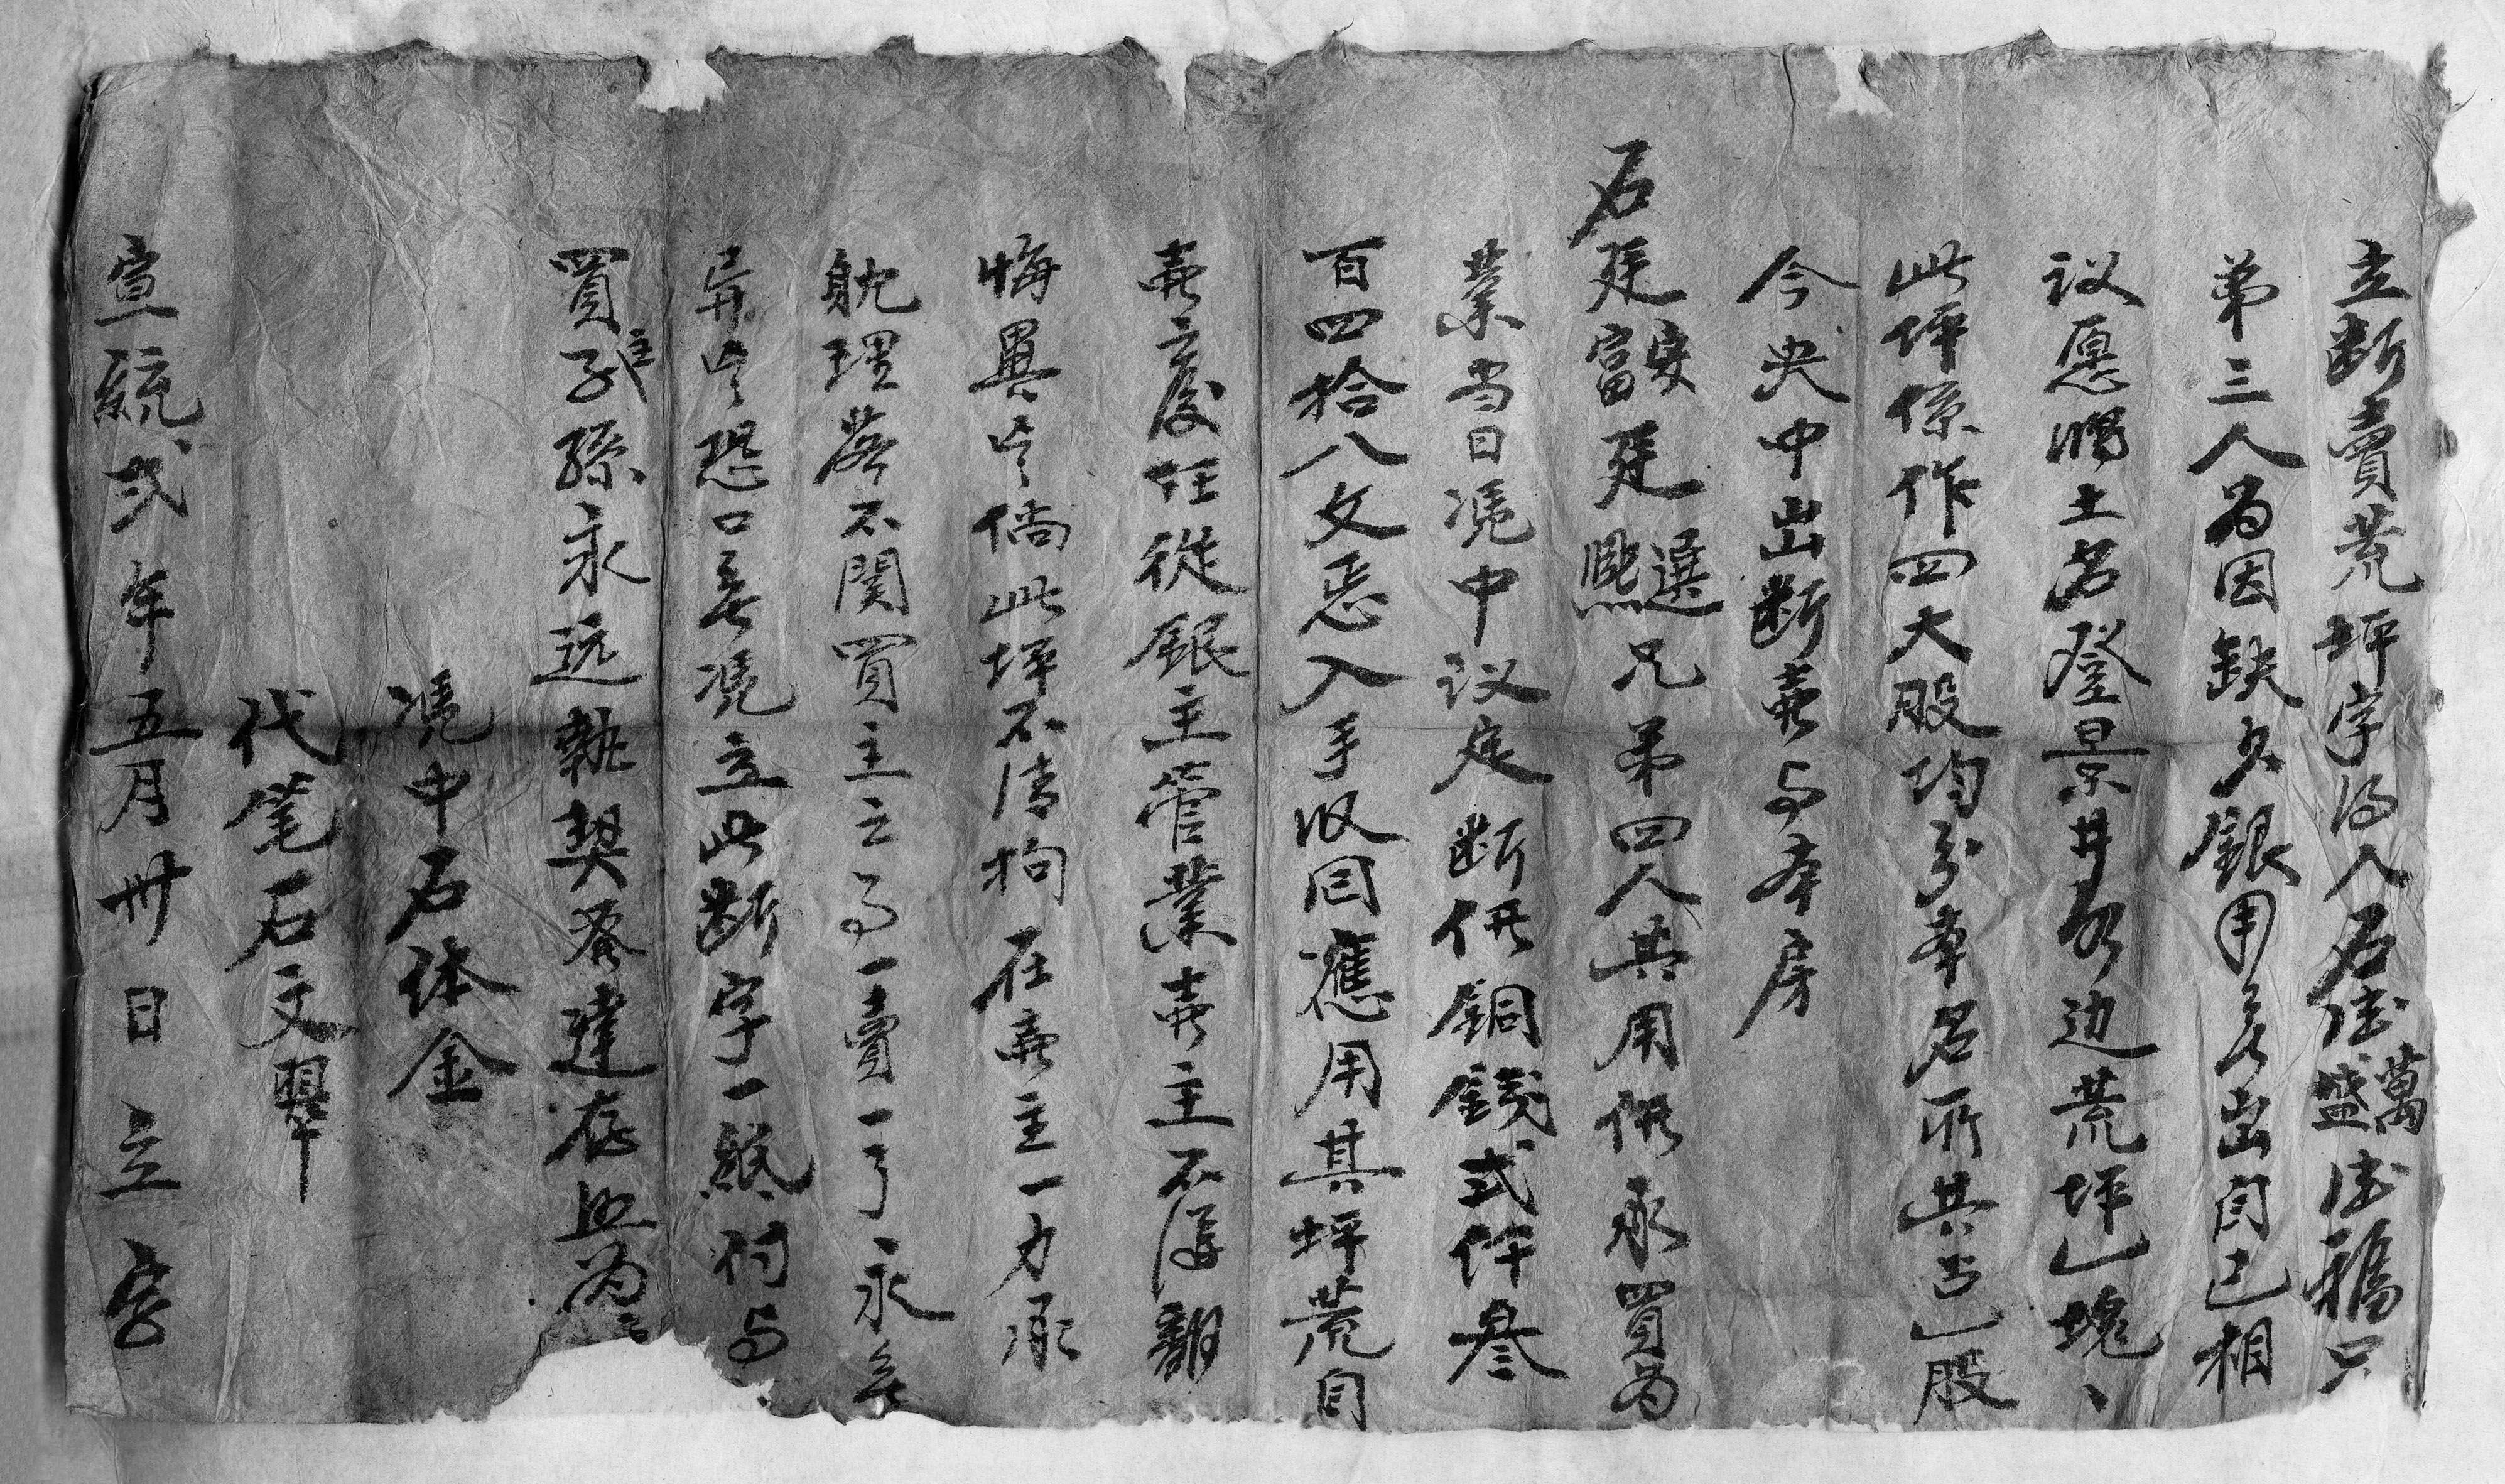 立断賣荒坪字的人石德萬盛德福只
弟三人为因缺欠銀用無出自己相
议愿將土名登景井边荒坪乚塊、
此坪係作四大股均分本名所共占乚股
今央中出断賣与本房
石廷富安廷熙選兄弟四人共用价承買为
業当日凴中议定断价銅錢弍仟叁
百四拾八文悉入手收回應用其坪荒自
賣之後任從銀主管業賣主不得翻
悔異言倘此坪不清拘在賣主一力承
躭理落不関買主之事一賣一了永無
異言恐口無凴立此断字一紙付与
買主子孫永远執契發達存照为
凴中石体金
代笔石文翠
宣統弍年五月卅日立字